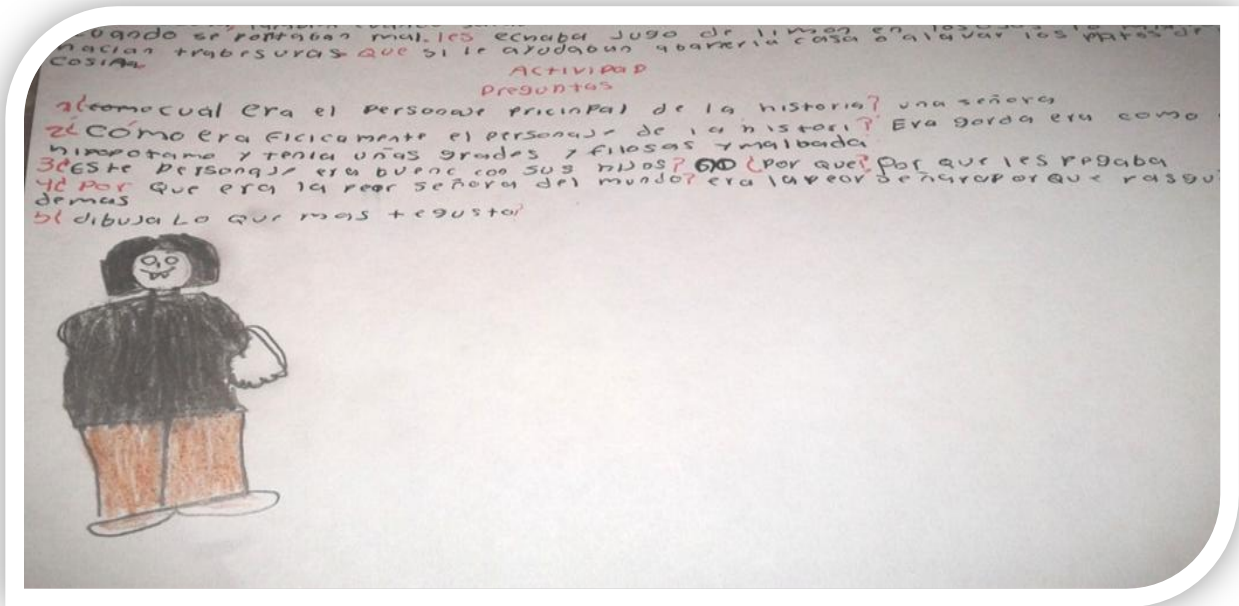 cuando se portaban mal. les echaba jugo de limon en los
hacian trabesuras que si le ayudaban abarrerla casa o alavar los platos de
cosina
ACtiviDaD
Preguntas
1¿comocual era el Personaje Pricinpal de la historia? una señora
2¿Cómo era ficicamente el personaje de la histori? Era gorda era como
hipopotamo y tenia uñas grades y filosas y malbada
3¿Este personaje era bueno con sus hijos? ¿por que? Por que les pegaba
4¿Por que era la peor señora del mundo? era lapeor señoraporque rasgu
demas
5¿dibuja Lo que mas te gusto?